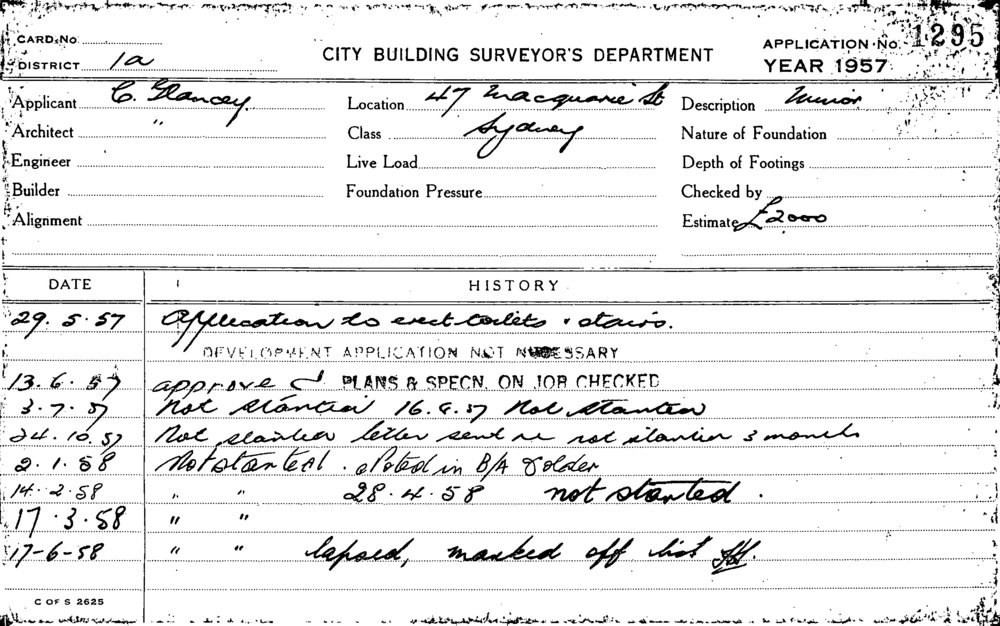 CARD No.
DISTRICT 1a
CITY BUILDING SURVEYOR'S DEPARTMENT
APPLICATION No. 1295
YEAR 1957
Applicant C. Glancey Location 47 Macquarie St Description Minor
Architect " Class Sydney Nature of Foundation
Engineer Live Load Depth of Footings
Builder Foundation Pressure Checked by
Alignment Estimate £2000
DATE HISTORY
29.5.57 Application to erect toilets & stairs.
DEVELOPMENT APPLICATION NOT NECESSARY
13.6.57 approve PLANS & SPECN. ON JOB CHECKED
3.7.57 Not started 16.8.57 Not started
24.10.57 Not started letter send re not started 3 months
2.1.58 Not started. Noted in B/A Folder
14.2.58 " " 28.4.58 not started.
17.3.58 " "
17-6-58 " " lapsed, marked off list
C OF S 2625